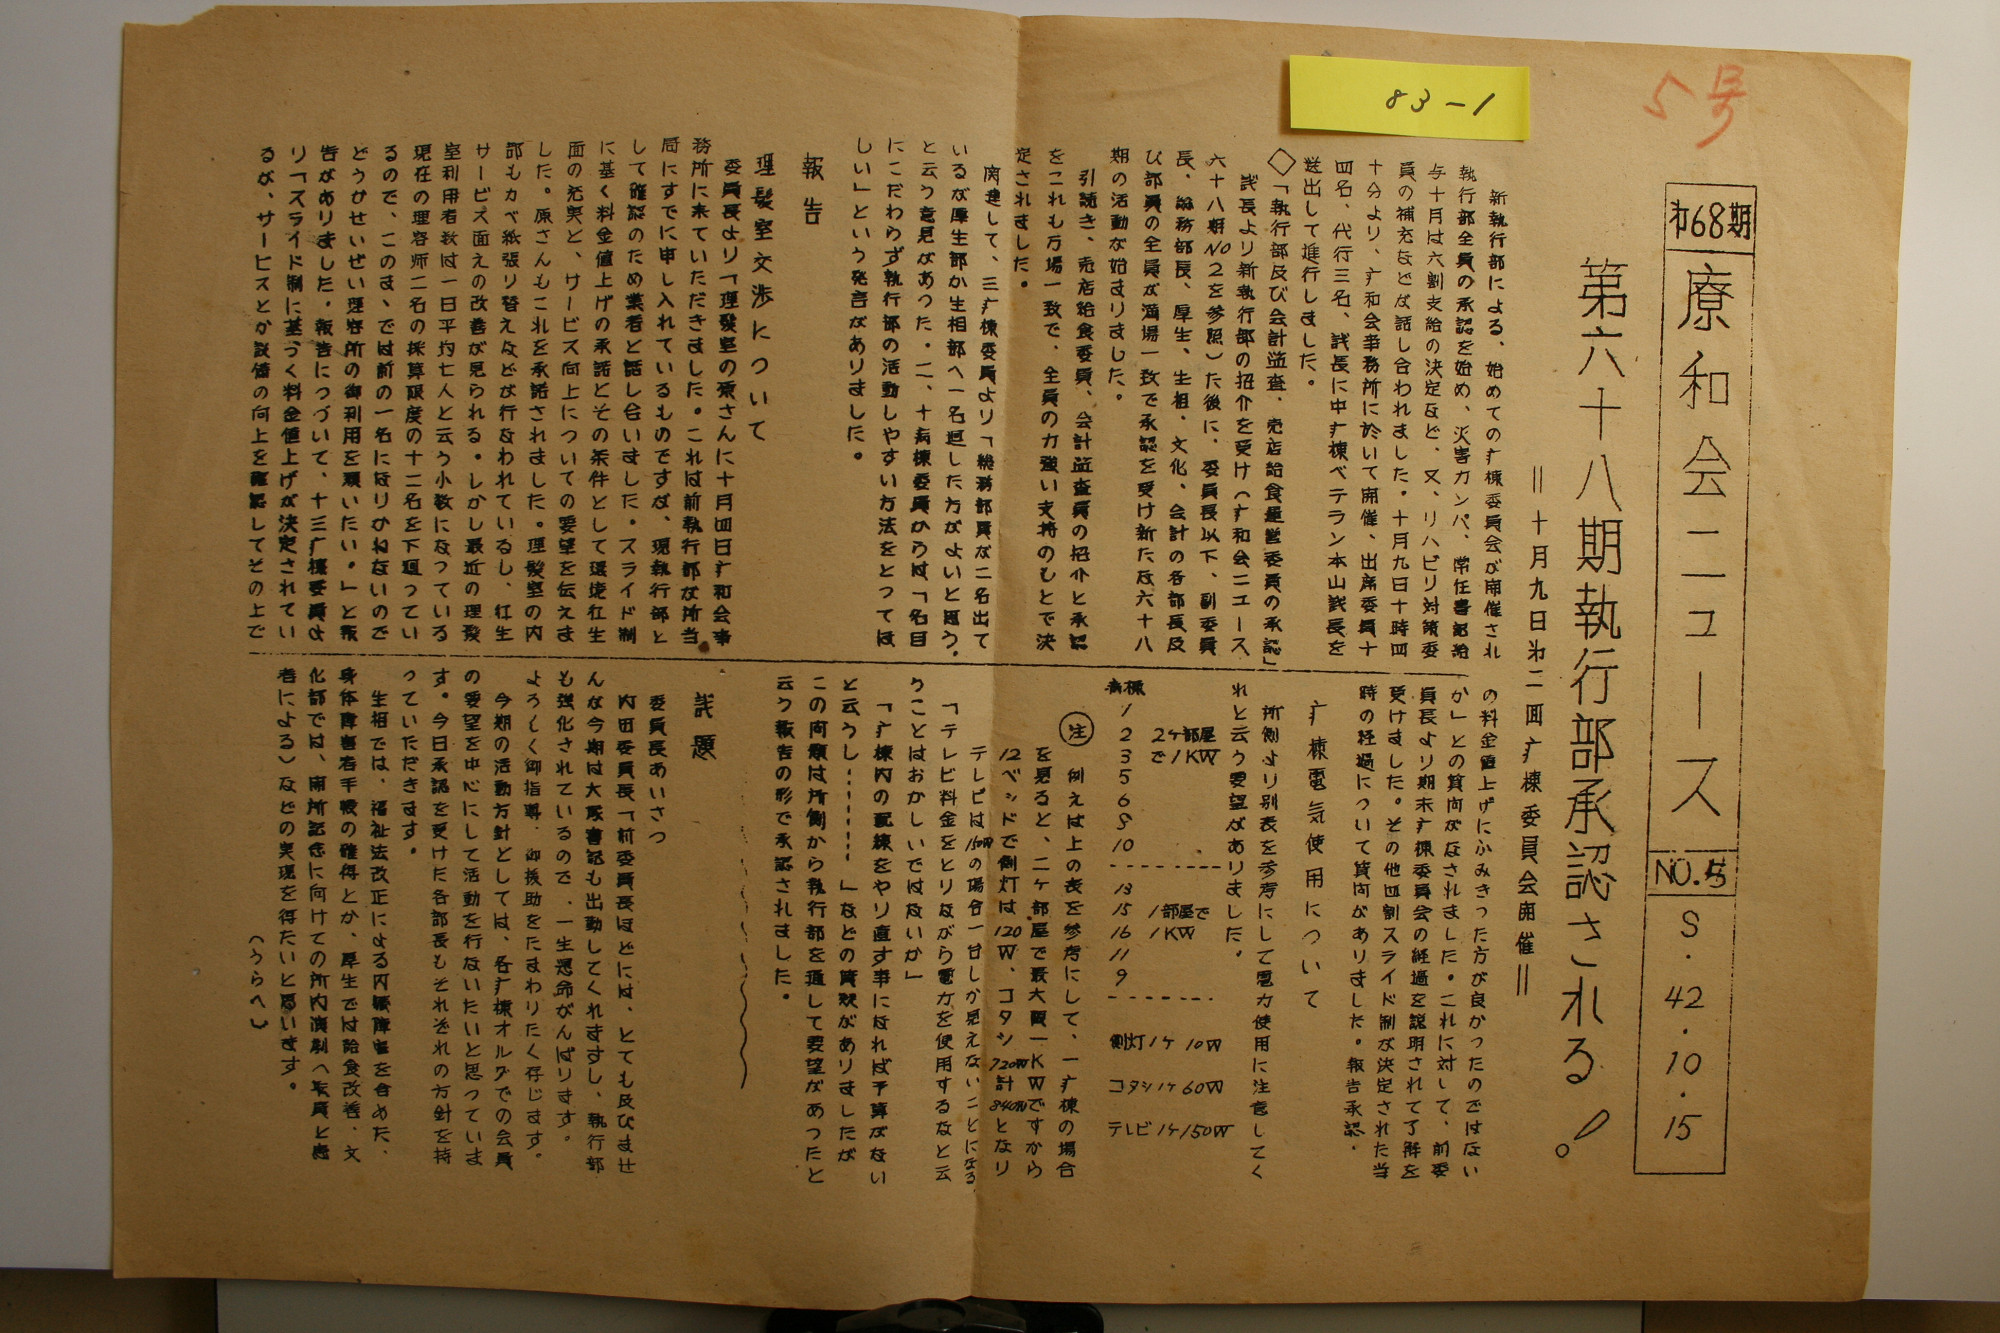 83-1
5号
才68期
療和会ニュース
NO.5
S・42・10・15
第六十八期執行部承認される!
＝十月九日才二回疒棟委員会開催＝
新執行部による、始めての疒棟委員会が開催され
執行部全員の承認を始め、災害カンパ、常任書記給
与十月は六割支給の決定など、又、リハビリ対策委
員の補充などが話し合われました。十月九日十時四
十分より、疒和会事務所に於いて開催、出席委員十
四名、代行三名、議長に中疒棟ベテラン本山議長を
送出して進行しました。
◇「執行部及び会計監査、売店給食運営委員の承認」
議長より新執行部の招介を受け(疒和会ニュース、
六十八期NO2を参照)た後に、委員長以下、副委員
長、総務部長、厚生、生相、文化、会計の各部長及
び部員の全員が満場一致で承認を受け新たな六十八
期の活動が始まりました。
引続き、売店給食委員、会計監査員の招介と承認
をこれも万場一致で、全員の力強い支持のもとで決
定されました。
関連して、三疒棟委員より「総務部員が二名出て
いるが厚生部か生相部へ一名廻した方がよいと思う、
と云う意見があった。二、十病棟委員からは、「名目
にこだわらず執行部の活動しやすい方法をとってほ
しい」という発言がありました。
報告
理髪室交渉について
委員長より「理髪室の原さんに十月四日疒和会事
務所に来ていただきました。これは前執行部が所当
局にすでに申し入れているものですが、現執行部と
して確認のため業者と話し合いました。スライド制
に基く料金値上げの承諾とその条件として環境衛生
面の充実と、サービス向上についての要望を伝えま
した。原さんもこれを承諾されました。理髪室の内
部もカベ紙張り替えなどが行なわれているし、衛生
サービス面えの改善が見られる。しかし最近の理髪
室利用者数は一日平均七人と云う小数になっている
現在の理容師二名の採算限度の十二名を下廻ってい
るので、このまゝでは前の一名になりかねないので
どうかせいぜい理容所の御利用を願いたい。」と報
告がありました。報告につづいて、十三疒棟委員よ
り「スライド制に基づく料金値上げが決定されてい
るが、サービスとか設備の向上を確認してその上で
の料金値上げにふみきった方が良かったのではない
か」との質問がなされました。これに対して、前委
員長より期末疒棟委員会の経過を説明されて了解を
受けました。その他四割スライド制が決定された当
時の経過について質問がありました。報告承認。
疒棟電気使用について
所側より別表を参考にして電力使用に注意してく
れと云う要望がありました。
病棟
1
2 2ヶ部屋
3 で1KW
5
6
8
10
13
15 1部屋で
16 1KW
11
9
側灯1ヶ 10W
コタツ1ヶ60W
テレビ1ヶ150W
注 例えば上の表を参考にして、一疒棟の場合
を見ると、二ヶ部屋で最大限一KWですから
12ベッドで側灯は120W、コタシ720W計840Wとなり
テレビは150Wの場合一台しか見えないことになる。
「テレビ料金をとりながら電力を使用するなと云
うことはおかしいではないか」
「疒棟内の配線をやり直す事になれば予算がない
と云うし………」などの質疑がありましたが
この問題は所側から執行部を通して要望があったと
云う報告の形で承認されました。
議題
委員長あいさつ
内田委員長「前委員長ほどには、とても及びませ
んが今期は大原書記も出勤してくれますし、執行部
も強化されているので、一生懸命がんばります。
よろしく御指導、御援助をたまわりたく存じます。
今期の活動方針としては、各疒棟オルグでの会員
の要望を中心にして活動を行ないたいと思っていま
す。今日承認を受けた各部長もそれぞれの方針を持
っていただきます。
生相では、福祉法改正による内臓障害を含めた、
身体障害者手帳の確得とか、厚生では給食改善、文
化部では、開所記念に向けての所内演劇(転員と患
者による)などの実現を得たいと思います。
(うらへ)